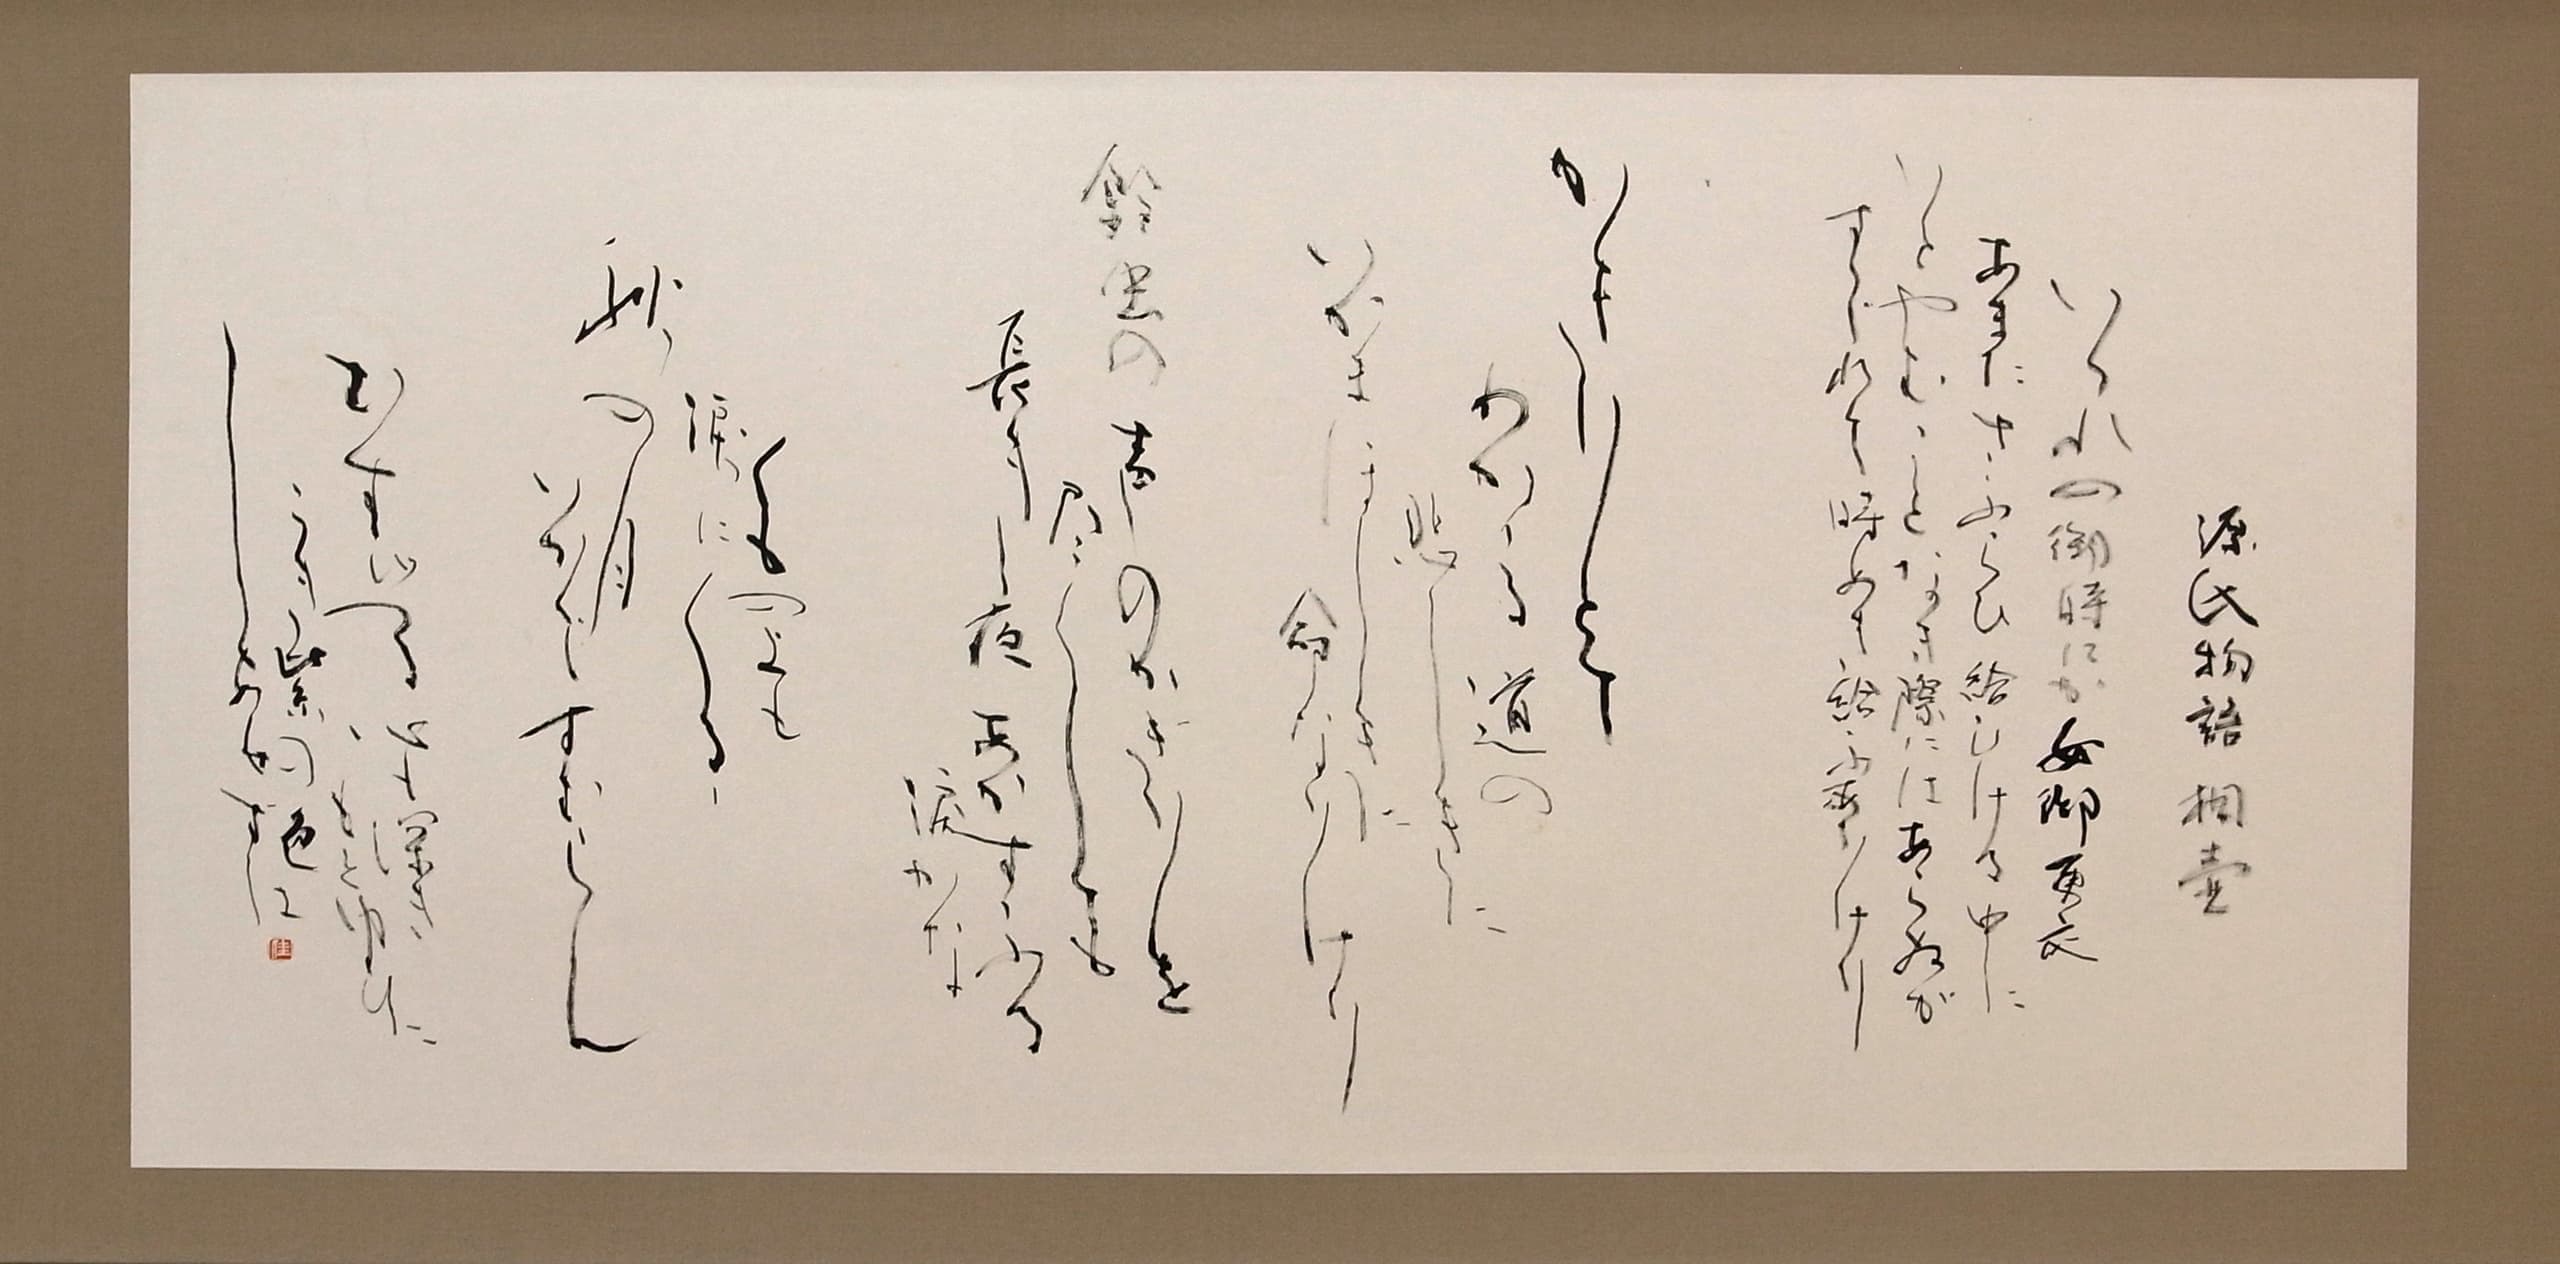 源氏物語 桐壷
いづれの御時にか女御更衣
あまたさぶらひ給ひける中に
いとやむごとなき際にはあらぬが
すぐれて時めき給ふありけり
かぎりとて
わかるゝ道の
悲しきに
いかまほしきに
命なりけり
鈴虫の声のかぎりを
尽くしても
長き夜あかずふる
涙かな
雲のうへも
涙にくるゝ
秋の月
いかですむらん
むすびつる心も深き
もとゆひに
こき紫の色は
しあせずは
佳